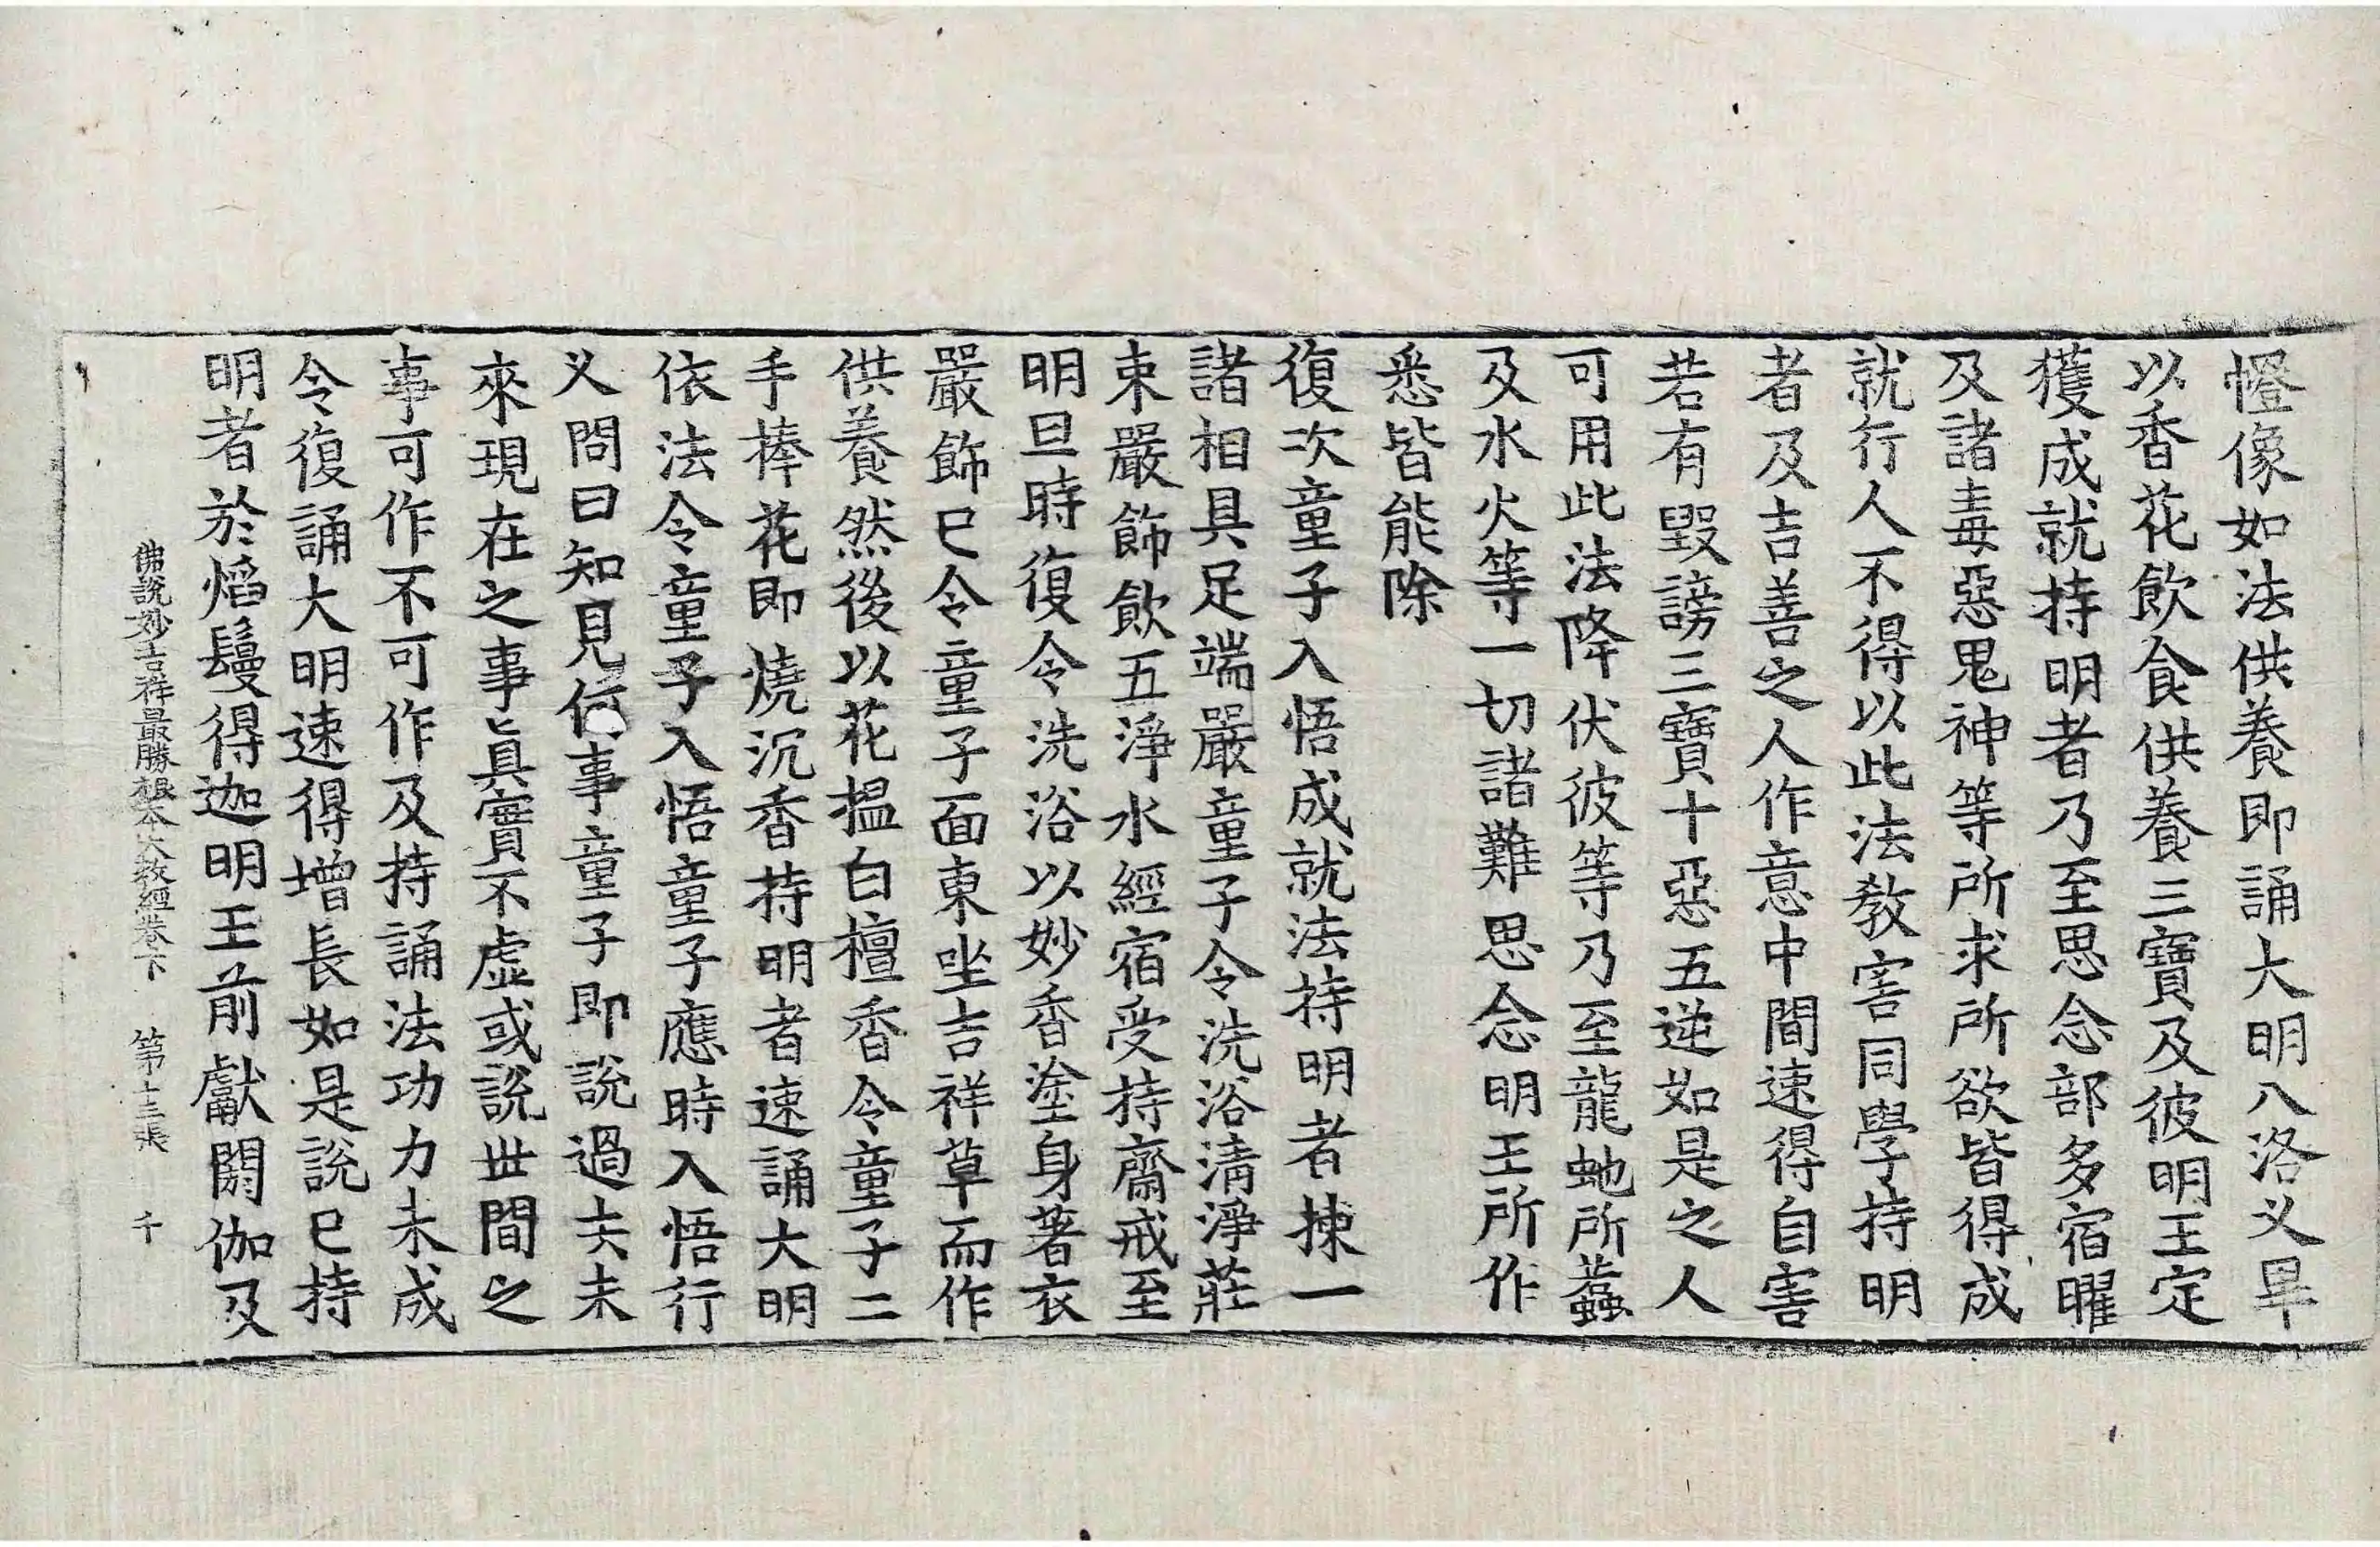 憕像如法供養即誦大明八洛义畢
以香花飲食供養三寶及彼明王定
獲成就持明者乃至思念部多宿曜
及諸毒惡鬼神等所求所欲皆得成
就行人不得以此法教害同學持明
者及吉善之人作意中間速得自害
若有毀謗三寶十惡五逆如是之人
可用此法降伏彼等乃至龍虵所螫
及水火等一切諸難思念明王所作
悉皆能除
復次童子入悟成就法持明者揀一
諸相具足端嚴童子令洗浴清淨莊
束嚴飾飲五淨水經宿受持齋戒至
明旦時復令洗浴以妙香塗身著衣
嚴飾巳令童子面東坐吉祥草而作
供養然後以花搵白檀香令童子二
手捧花即燒沉香持明者速誦大明
依法令童子入悟童子應時入悟行
义問曰知見何事童子即說過去未
來現在之事眞實不虛或說世間之
事可作不可作及持誦法功力未成
令復誦大明速得增長如是說巳持
明者於焰鬘得迦明王前獻閼伽及
佛說妙吉祥最勝根本大教經卷下 第十三張 千